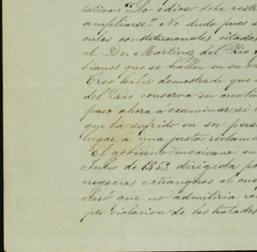 lativo: "Lo odioso debe rest
ampliarse." No dudo, pues
culos constitucionales citados
el Dr. Martinez del Rio
que se hallen en su
Creo haber demostrado que
del Rio conserva su
paso ahora a examinar si
que ha sufrido en su pers
lugar a una justa reclam
El gobierno mexicano en
Julio de 1853, dirigida por
negocios extrangeros al
claró que no admitiria re
por violacion de los tratados